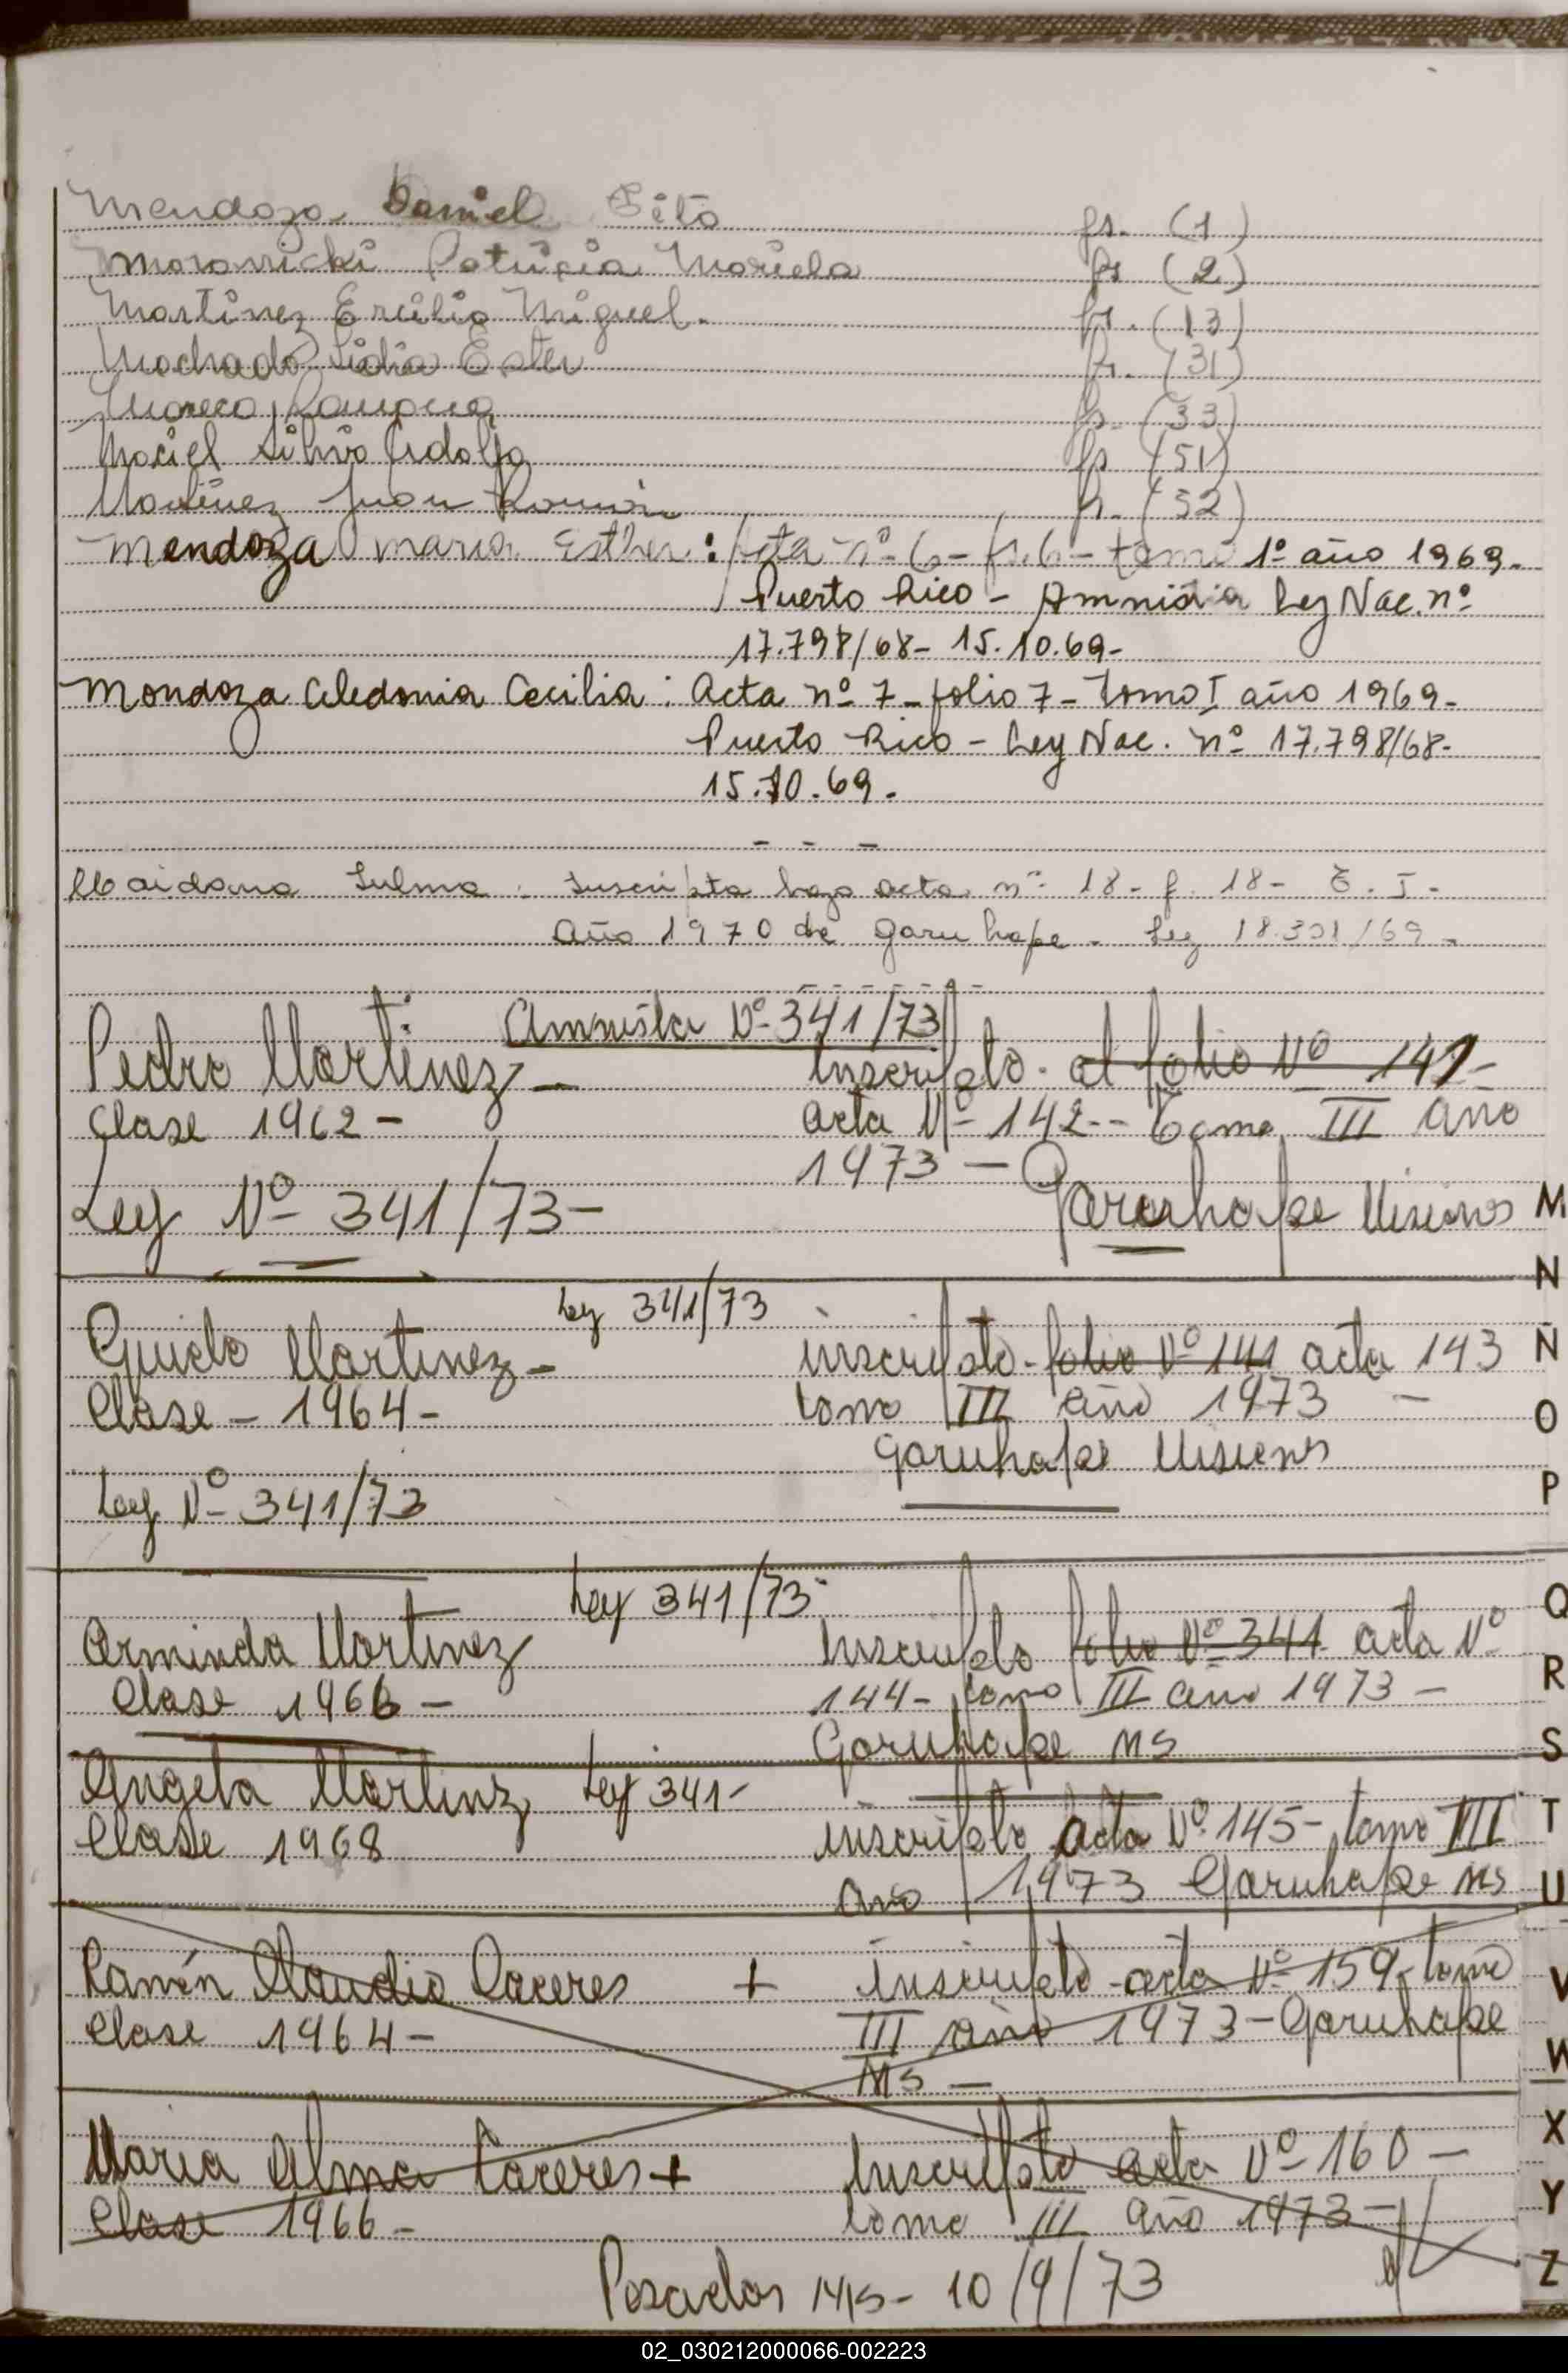 Mendoza Daniel Tito fs. (1)
Patricia Mariela fs (2)
Martinez Ercilio Miguel. fs. (13)
Machado Lidia Ester fs. (31)
Ramona fs. (33)
Maciel Silvio Adolfo fs (51)
Martinez Juan Ramón fs. (52)
Mendoza maria Esther: Acta nº 6 - fs. 6 - tomo 1º año 1969.
Puerto Rico - Amnistia Ley Nac. nº
17.798/68- 15.10.69-
Mondoza Celedonia Cecilia: Acta nº 7 - folio 7 - Tomo I año 1969-
Puerto Rico - Ley Nac. nº 17.798/68-
15.10.69.
- - -
Maidana Sulma. Inscripta bajo acta nº 18 - f. 18 - T. I -
Año 1970 de Garuhape - Ley 18.301/69 -
Amnistia Nº 341/73
Pedro Martinez - Inscripto - al folio Nº 141-
Clase 1962 - acta Nº 142 -- Tomo III año
1973 -
Ley Nº 341/73- Garuhape Misiones
Ley 341/73
Guido Martinez - inscripto - folio Nº 141 acta 143
Clase - 1964 - tomo III año 1973 -
Garuhape Misiones
Ley Nº 341/73
Ley 341/73
Arminda Martinez Inscripto folio Nº 341 acta Nº
Clase 1966 - 144 - tomo III año 1973 -
Garuhape Ms
Angela Martinz Ley 341-
Clase 1968 inscripto Acta Nº 145 - tomo III
año 1973 Garuhape Ms
Ramón Claudio Caceres + inscripto - acta Nº 159 - tomo
Clase 1964 - III año 1973 - Garuhape
Ms -
Maria Elma Caceres + Inscripto acta Nº 160 -
Clase 1966 - tomo III año 1973 -
Posadas Mis - 10/9/73
M
N
Ñ
O
P
Q
R
S
T
U
V
W
X
Y
Z
02_030212000066-002223